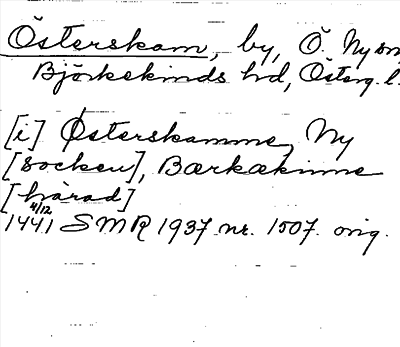 Österskam, by, Ö. Ny sn
Björkekinds hd, Österg. l.
[i] Østerskamme, Ny
[socken], Bærkækinne
[härad]
4/12
1441 SMR 1937 nr. 1507. orig.